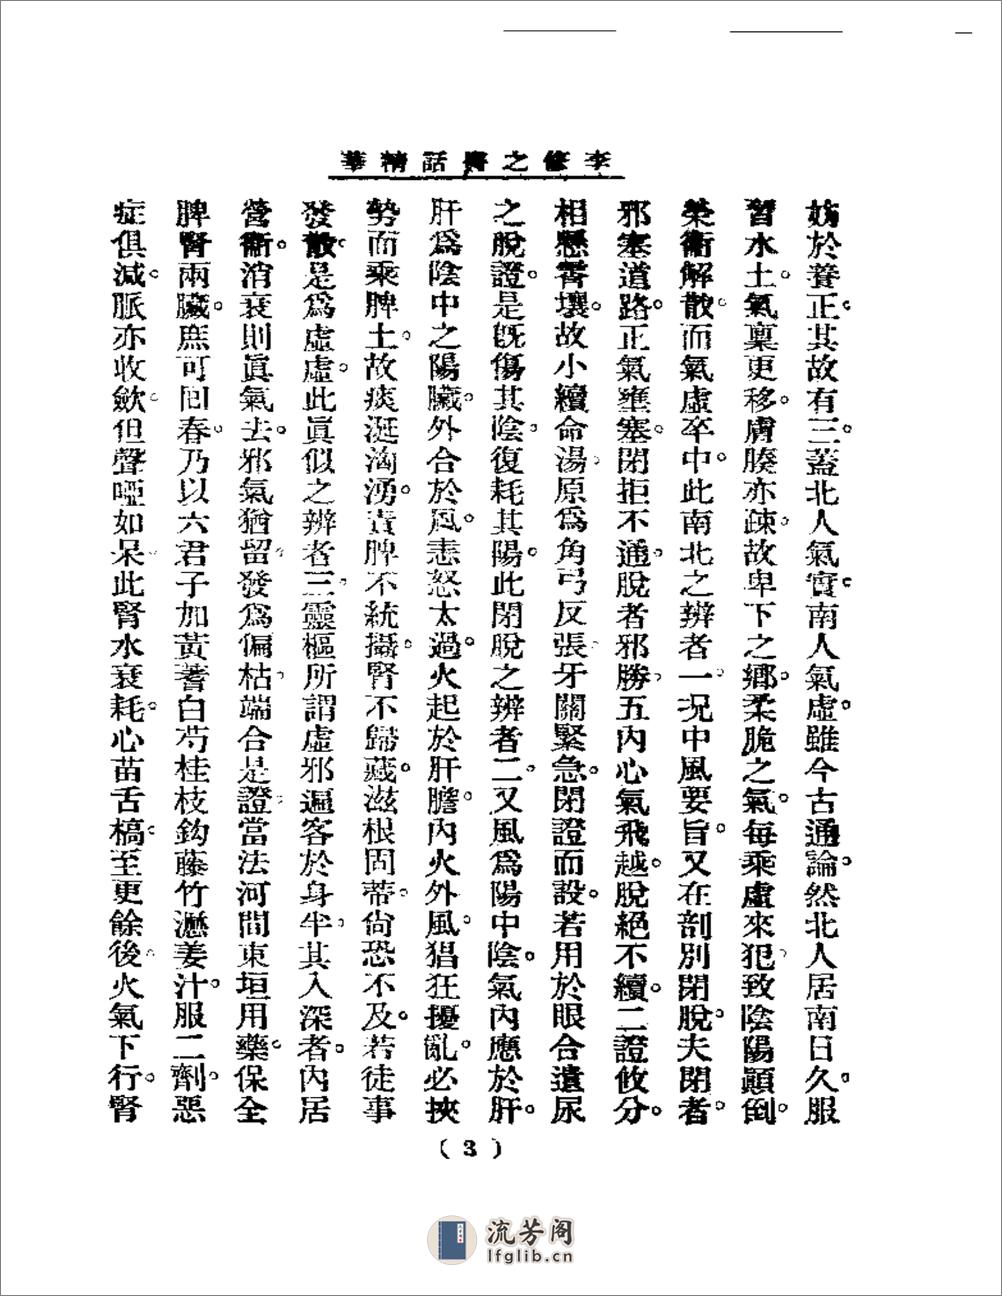 李修之醫話精華
妨於養正。其故有三。蓋北人氣實。南人氣虛。雖今古通論。然北人居南日久。服
習水土。氣稟更移。膚腠亦疎。故卑下之鄉。柔脆之氣。每乘虛來犯。致陰陽顚倒。
榮衞解散。而氣虛卒中。此南北之辨者一。況中風要旨。又在剖別閉脫。夫閉者。
邪塞道路。正氣壅塞。閉拒不通。脫者邪勝。五內心氣飛越。脫絕不續。二證攸分。
相懸霄壤。故小續命湯。原爲角弓反張。牙關緊急。閉證而設。若用於眼合遺尿
之脫證。是旣傷其陰。復耗其陽。此閉脫之辨者二。又風爲陽中陰。氣內應於肝。
肝爲陰中之陽臟。外合於風。恚怒太過。火起於肝膽。內火外風。猖狂擾亂。必挾
勢而乘脾土。故痰涎洶湧。責脾不統攝。腎不歸藏。滋根固蒂。尙恐不及。若徒事
發散。是爲虛虛。此眞似之辨者三。靈樞所謂虛邪遍客於身半。其入深者。內居
營衞。消衰則眞氣去。邪氣猶留。發爲偏枯。端合是證。當法河間東垣用藥。保全
脾腎兩臟。庶可回春。乃以六君子加黃蓍白芍桂枝鈎藤竹瀝姜汁。服二劑。惡
症俱減。脈亦收歛。但聲啞如呆。此腎水衰耗。心苗舌槁。至更餘後。火氣下行。腎
(3)
流芳阁
lfglib.cn